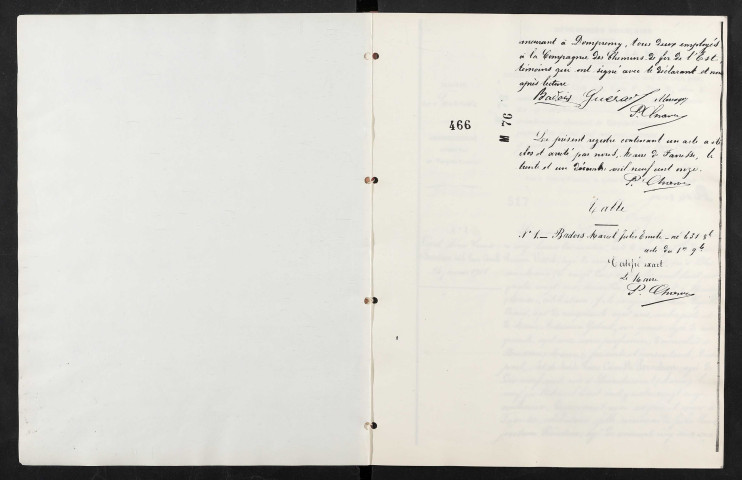 466
M 76
à Dompremy, tous deux employés
à la Compagnie des Chemins de fer de l'Est
témoins qui ont signé avec le déclarant et nous
après lecture
Badois
Le présent registre contenant un acte a été
clos et arrêté par nous, Maire de
trente et un décembre mil neuf cent onze.
Table
N° 1. — Badois Marcel Jules Emile — né le 31 8bre
acte du 1er 9bre
Certifié exact
Le Maire